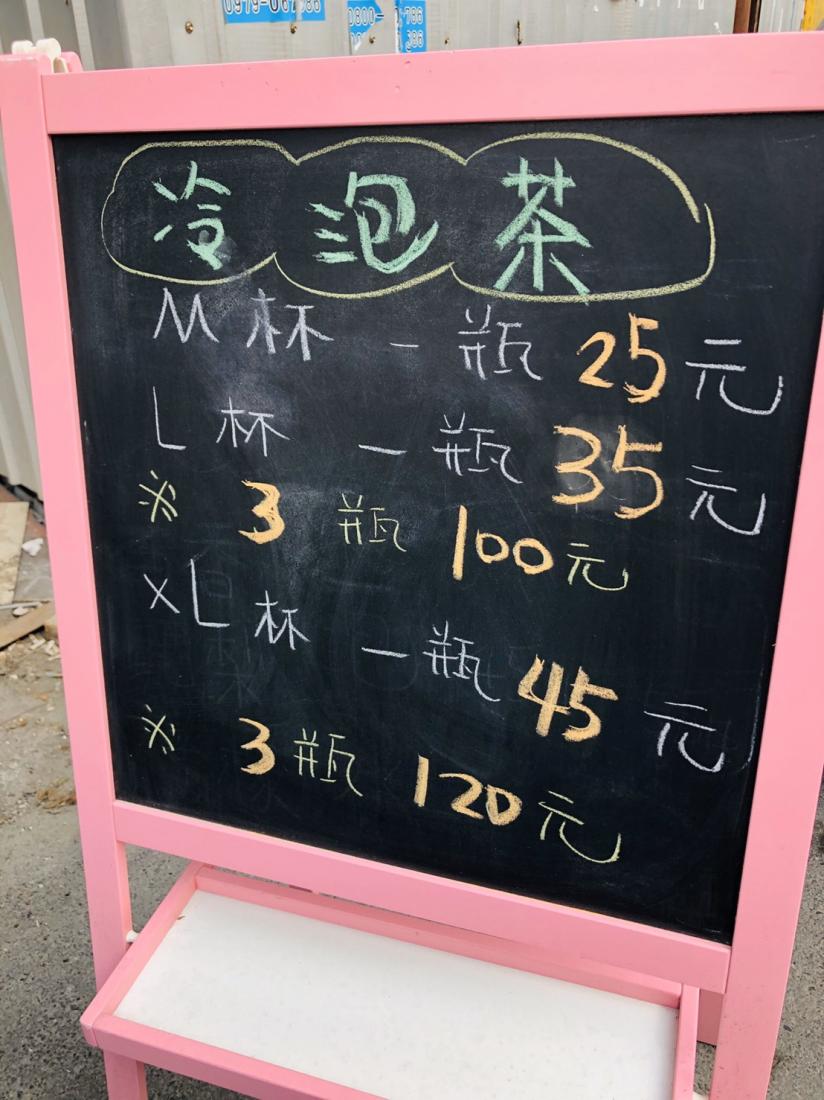 冷泡茶
M杯 一瓶 25元
L杯 一瓶 35元
※ 3瓶 100元
XL杯 一瓶 45元
※ 3瓶 120元